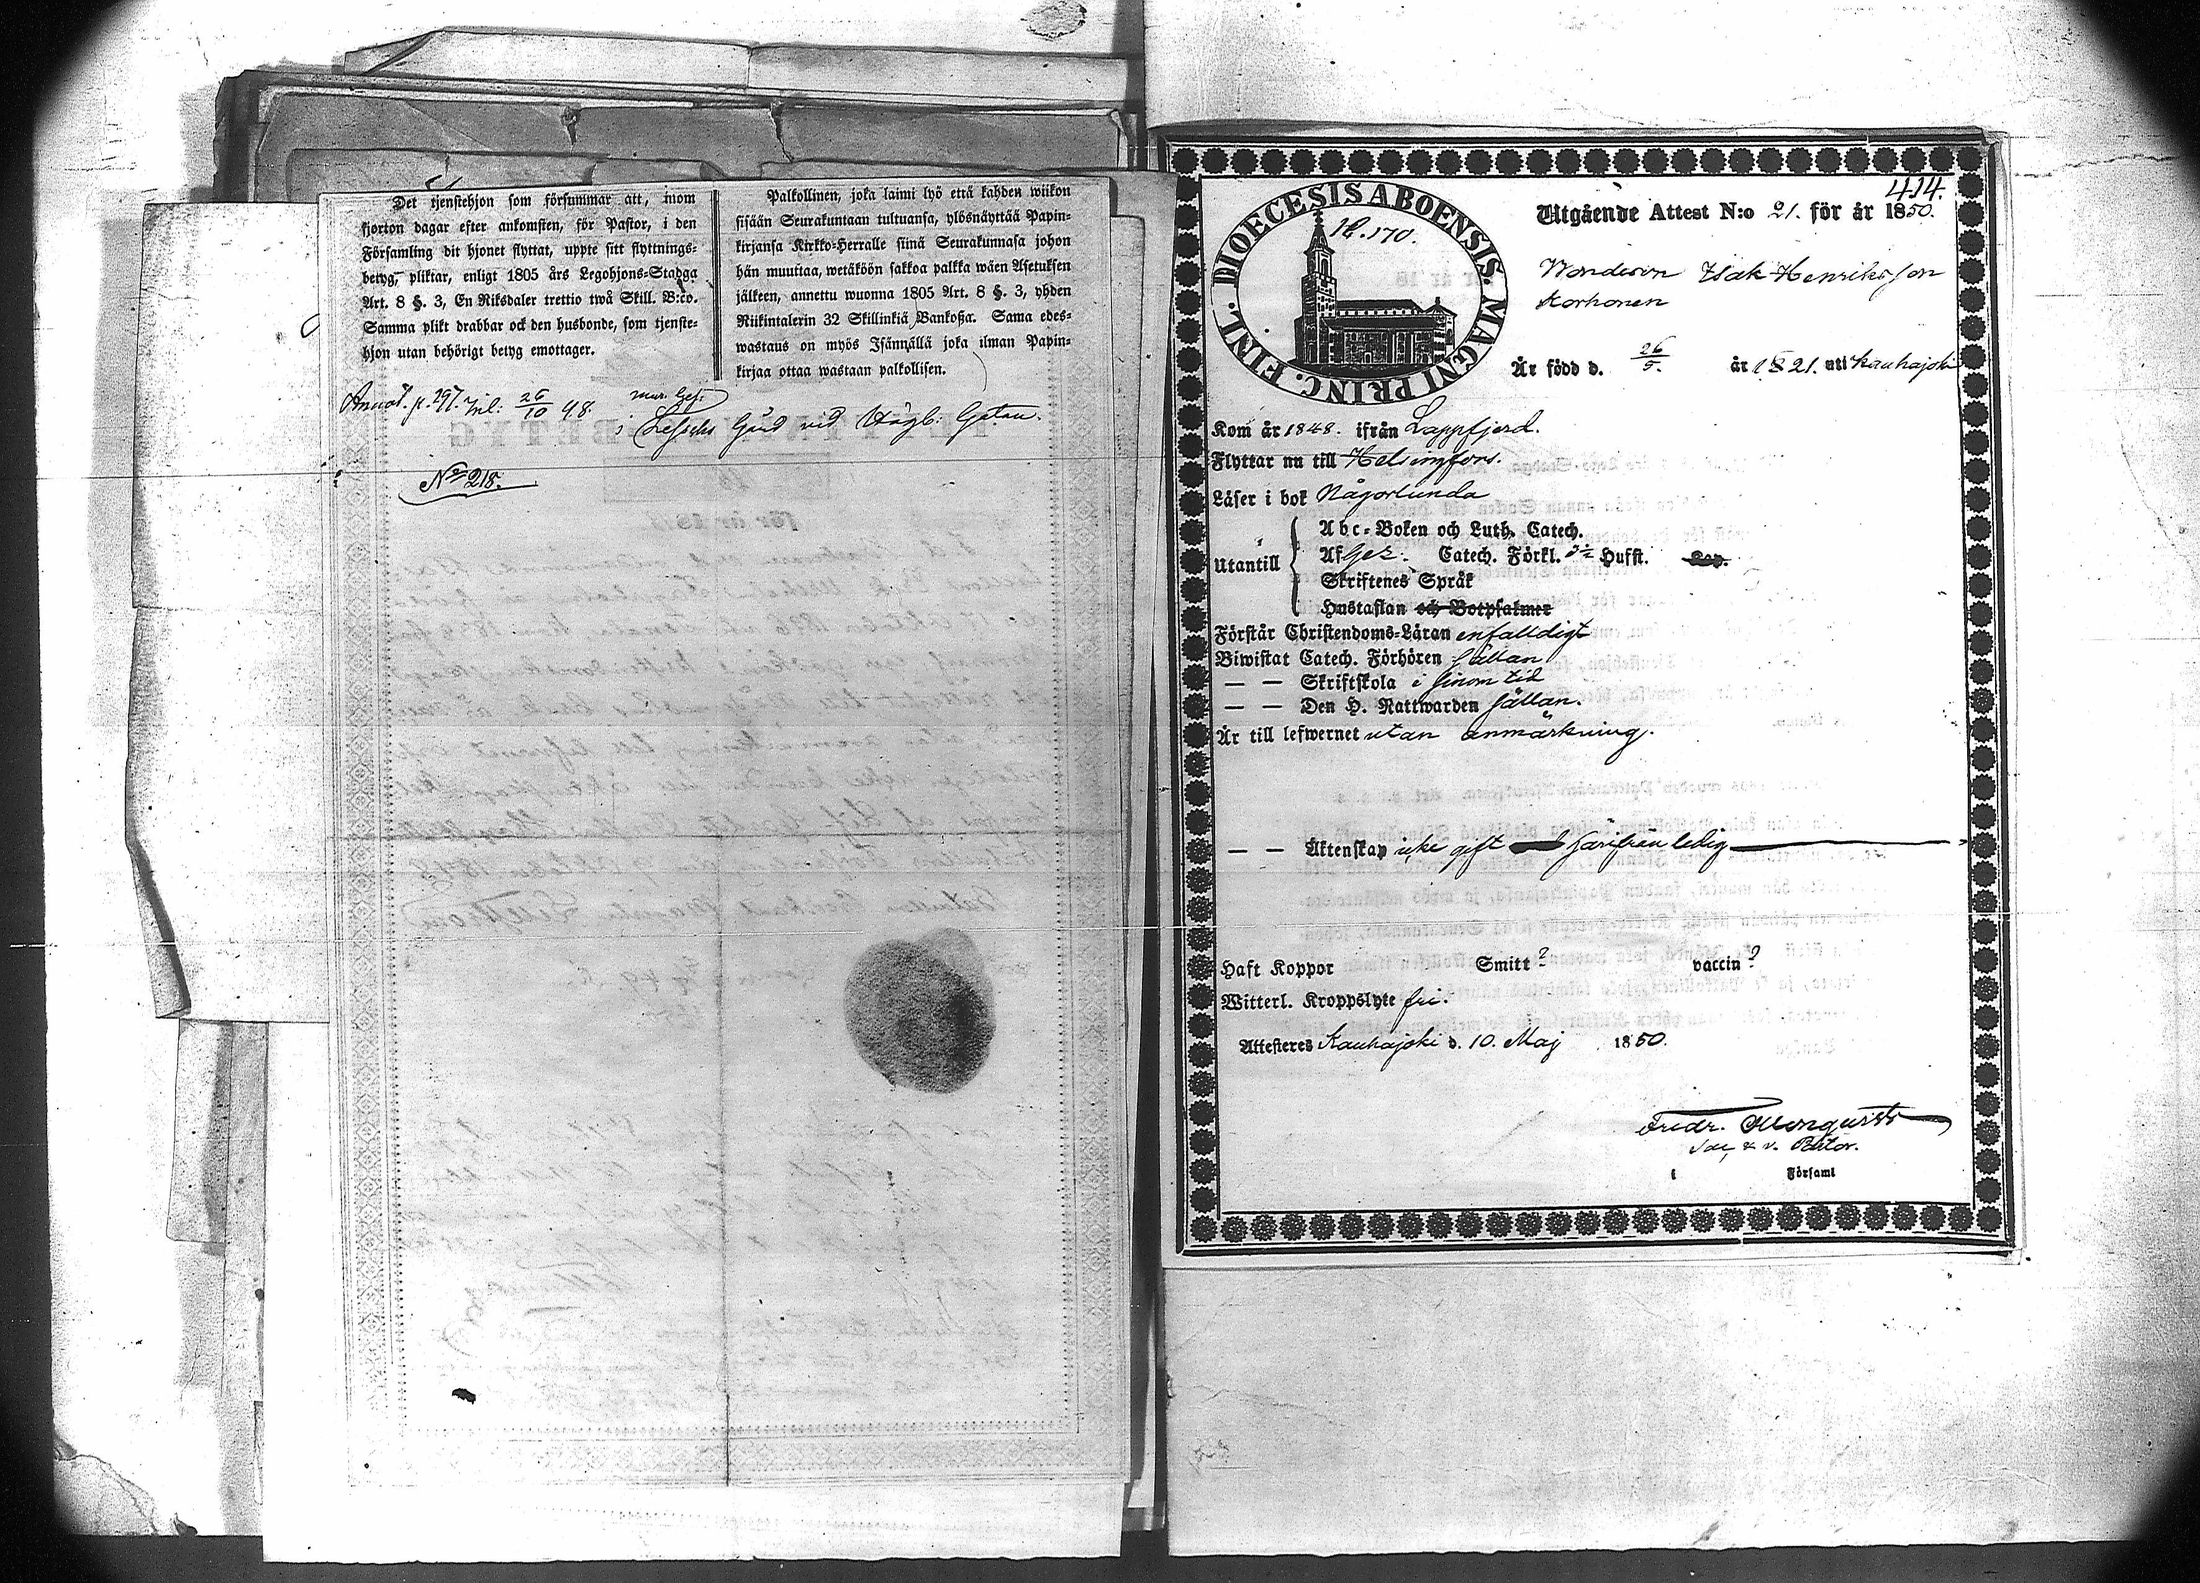 Det tjenstehjon som försummar att, inom
fjorton dagar efter ankomsten, för Pastor, i den
Församling dit hjonet flyttat, uppte sitt flyttnings-
betyg, pliktar, enligt 1805 års Legohjons-Stadga
Art. 8 §. 3, En Riksdaler trettio twå Skill. B:co.
Samma plikt drabbar ock den husbonde, som tjenste-
hjon utan behörigt betyg emottager.
Palkollinen, joka laimi lyö että kahden wiikon
sisään Seurakuntaan tultuansa, ylösnäyttää Papin-
kirjansa Kirkko-Herralle siinä Seurakunnasa johon
hän muuttaa, wetäköön sakkoa palkka wäen Asetuksen
jälkeen, annettu wuonna 1805 Art. 8 §. 3, yhden
Riikintalerin 32 Skillinkiä Bankosa. Sama edes-
wastaus on myös Isännällä joka ilman Papin-
kirjaa ottaa wastaan palkollisen.
Annot. p. 297. 26/10 48.
Gård vid Högb: Gatan.
No 218.
414.
DIOECESIS ABOENSIS MAGNI PRINC. FINL.
170.
Utgående Attest N:o 21. för år 1850.
Isak Henriksson
Korhonen
Är född d. 26/5. år 1821. uti Kauhajoki
Kom år 1848. ifrån Lappfjerd.
Flyttar nu till Helsingfors.
Läser i bok Någorlunda
Utantill
Abc-Boken och Luth. Catech.
Af Catech. Förkl. Hufst. Kap.
Skriftenes Språk
Hustaflan och Botpsalmer
Förstår Christendoms-Läran enfaldigt
Biwistat Catech. Förhören sällan
— — Skriftskola i sinom tid
— — Den H. Nattwarden sällan.
Är till lefwernet utan anmärkning.
— — Äktenskap icke gift härifrån ledig
Haft Koppor Smitt? vaccin?
Witterl. Kroppslyte fri.
Attesteras Kauhajoki d. 10. Maj 1850.
Fredr.
v. Pastor.
i Församl